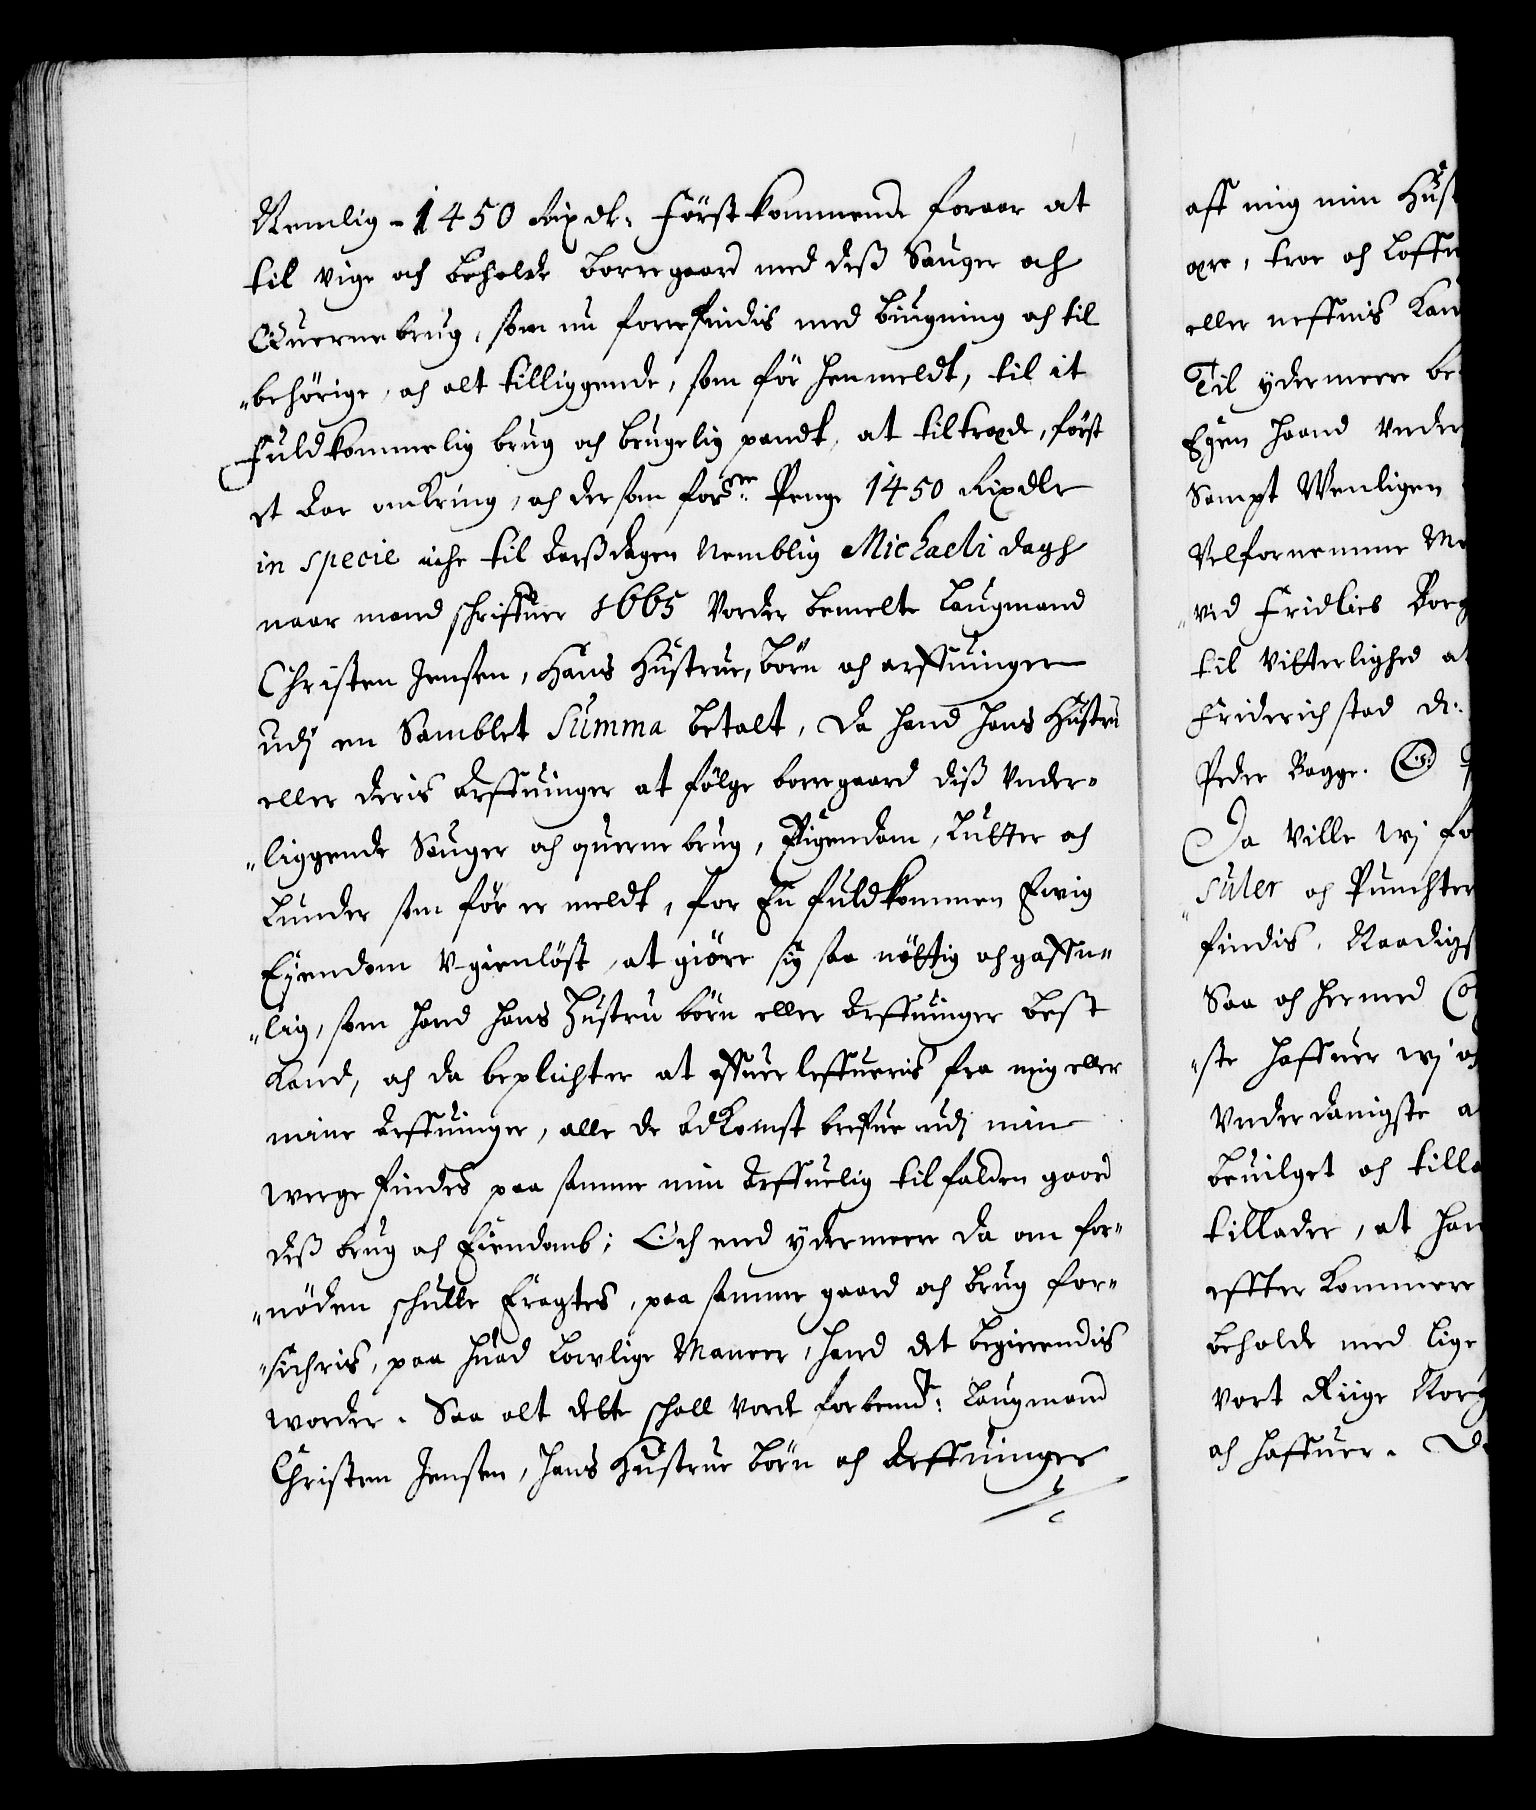 Nemlig - 1450 Rixdl: Först kommende foraar at
til vige och beholde borregaard med dess Sauger och
Quernebrug, som nu forrefindis med biugning och til
"behörige, och alt tilliggende, som för henmeldt, til it
Fuldkommelig brug och brugelig pandt, at tiltræde, först
et aar omkring, och dersom forsne: Penge 1450 Rixdlr
in specie iche til aarssdagen Nemblig Michaeli dagh
naar mand schriffuer 1665 Vorder bemelte Laugmand
Christen Jensen, Hans Hustrue, börn och arffuinger
udj en Samblet Summa betalt, da hand hans Hustru
eller deris Arffuinger at fölge borregaard diss Vnder-
"liggende Sauger och querne brug, Eigendom, Lutter och
Lunder som för er meldt, for En fuldkommen Ewig
Eyendom V-gienlöst, at giöre sig saa nöttig och gaffn-
"lig, som hand hans Hustru börn eller Arffuinger best
Kand, och da beplichter at offuer leffueris fra mig eller
mine Arffuinger, alle de Adkomst breffue udj min
werge findes paa samme min Arffuelig tilfalden gaard
dess brug och Eiendomb; Och end ydermeere da om for-
"nöden schulle Eragtes, paa samme gaard och brug for-
"sichris, paa huad lowlige Maneer, hand det begierendis
worder. Saa alt dette schall Vorde forbemt: Laugmand
Christen Jensen, hans Hustrue börn och Arffuinger
aff mig min Hust
ære, troe och Loffu
eller neffnis Kan
Til ydermeere be
Egen haand Vnder
Sampt Wenligen
Velfornemme Me
"ved Fridlies Borg
til Vitterlighed at
Friderichstad d:
Peder Bagge. (L.S.)
Da Ville wj fo
"suler och Punchter
findis, Naadigst
Saa och hermed Co
"ste haffuer wj oc
Vnderdanigste a
beuilget och tilla
tillader, at han
effter Kommere
beholde med lige
vort Riige Norg
och haffuer. D